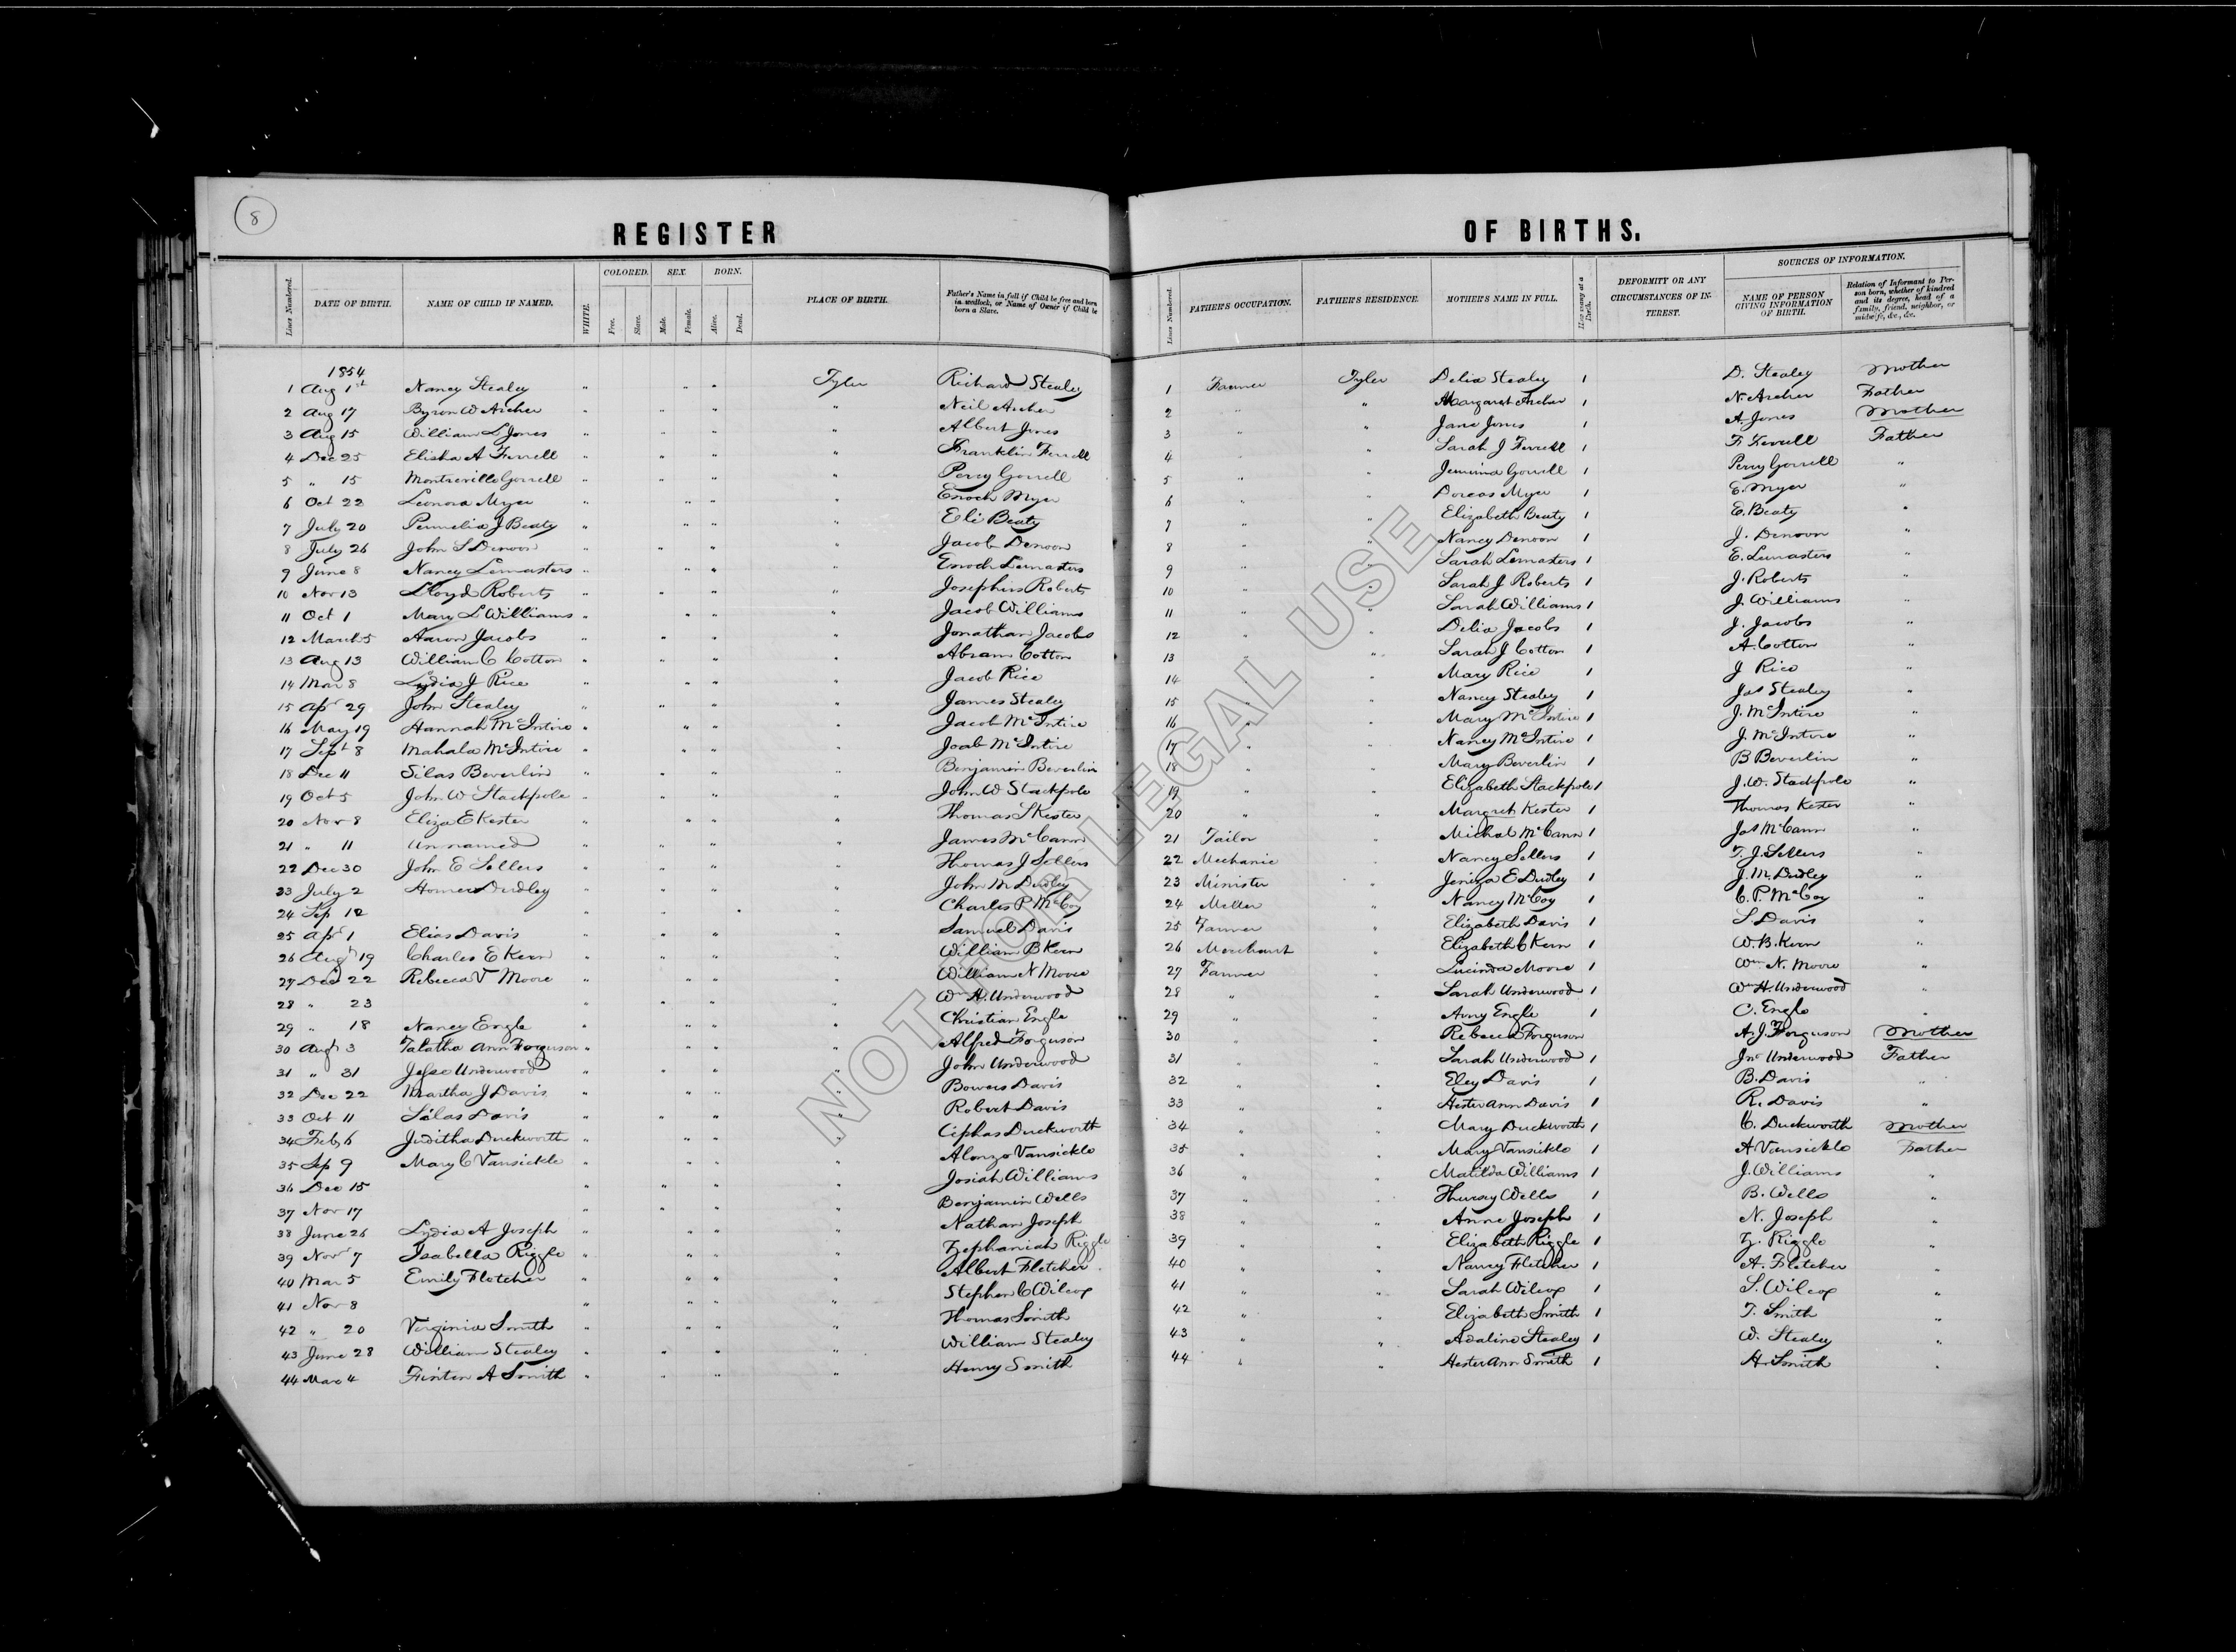 8
REGISTER OF BIRTHS.
Lines Numbered. DATE OF BIRTH. NAME OF CHILD IF NAMED. WHITE. COLORED. Free. Slave. SEX. Male. Female. BORN. Alive. Dead. PLACE OF BIRTH. Father's Name in full if Child be free and born in wedlock, or Name of Owner if Child be born a Slave. Lines Numbered. FATHER'S OCCUPATION. FATHER'S RESIDENCE. MOTHER'S NAME IN FULL. How many at a Birth. DEFORMITY OR ANY CIRCUMSTANCES OF INTEREST. SOURCES OF INFORMATION. NAME OF PERSON GIVING INFORMATION OF BIRTH. Relation of Informant to Person born, whether of kindred and its degree, head of a family, friend, neighbor, or midwife, &c., &c.
1854
1 Aug 1st Nancy Stealey " " " Tyler Richard Stealey 1 Farmer Tyler Delia Stealey 1 D. Stealey Mother
2 Aug 17 Byron W Archer " " " " Neil Archer 2 " " Margaret Archer 1 N. Archer Father
3 Aug 15 William L Jones " " " " Albert Jones 3 " " Jane Jones 1 A. Jones Mother
4 Dec 25 Elisha A Ferrell " " " " Franklin Ferrell 4 " " Sarah J Ferrell 1 F. Ferrell Father
5 " 15 Montreville Gorrell " " " " Perry Gorrell 5 " " Jemima Gorrell 1 Perry Gorrell "
6 Oct 22 Leonora Myer " " " " Enoch Myer 6 " " Dorcas Myer 1 E. Myer "
7 July 20 Permelia J Beaty " " " " Eli Beaty 7 " " Elizabeth Beaty 1 E. Beaty "
8 July 26 John S Denoon " " " " Jacob Denoon 8 " " Nancy Denoon 1 J. Denoon "
9 June 8 Nancy Lemasters " " " " Enoch Lemasters 9 " " Sarah Lemasters 1 E. Lemasters "
10 Nov 13 Lloyd Roberts " " " " Josephus Roberts 10 " " Sarah J Roberts 1 J. Roberts "
11 Oct 1 Mary L Williams " " " " Jacob Williams 11 " " Sarah Williams 1 J. Williams "
12 March 5 Aaron Jacobs " " " " Jonathan Jacobs 12 " " Delia Jacobs 1 J. Jacobs "
13 Aug 13 William C Cotton " " " " Abram Cotton 13 " " Sarah J Cotton 1 A. Cotton "
14 Mar 8 Lydia J Rice " " " " Jacob Rice 14 " " Mary Rice 1 J Rice "
15 Apr 29 John Stealey " " " " James Stealey 15 " " Nancy Stealey 1 Jas Stealey "
16 May 19 Hannah McIntire " " " " Jacob McIntire 16 " " Mary McIntire 1 J. McIntire "
17 Sept 8 Mahala McIntire " " " " Joab McIntire 17 " " Nancy McIntire 1 J. McIntire "
18 Dec 11 Silas Beverlin " " " " Benjamin Beverlin 18 " " Mary Beverlin 1 B Beverlin "
19 Oct 5 John W Stackpole " " " " John W Stackpole 19 " " Elizabeth Stackpole 1 J. W. Stackpole "
20 Nov 8 Eliza E Kester " " " " Thomas S Kester 20 " " Margret Kester 1 Thomas Kester "
21 " 11 Unnamed " " " " James McCann 21 Tailor " Michal McCann 1 Jas McCann "
22 Dec 30 John E Sellers " " " " Thomas J Sellers 22 Mechanic " Nancy Sellers 1 T. J. Sellers "
23 July 2 Homer Dudley " " " " John M Dudley 23 Minister " E Dudley 1 J. M. Dudley "
24 Sep 12 " " " " Charles P McCoy 24 " Nancy McCoy 1 C. P. McCoy "
25 Apr 1 Elias Davis " " " " Samuel Davis 25 Farmer " Elizabeth Davis 1 S. Davis "
26 Augt 19 Charles E Kern " " " " William B Kern 26 Merchant " Elizabeth C Kern 1 W. B. Kern "
27 Dec 22 Rebecca V Moore " " " " William N Moore 27 Farmer " Lucinda Moore 1 Wm N. Moore "
28 " 23 " " " " Wm H. Underwood 28 " " Sarah Underwood 1 Wm H. Underwood "
29 " 18 Nancy Engle " " " " Christian Engle 29 " " Amy Engle 1 C. Engle "
30 Augt 3 Talatha Ann Ferguson " " " " Alfred Ferguson 30 " " Rebecca Ferguson A. J. Ferguson Mother
31 " 31 Jesse Underwood " " " " John Underwood 31 " " Sarah Underwood 1 Jno Underwood Father
32 Dec 22 Martha J Davis " " " " Bowers Davis 32 " " Eley Davis 1 B. Davis "
33 Oct 11 Silas Davis " " " " Robert Davis 33 " " Hester Ann Davis 1 R. Davis "
34 Feb 6 Juditha Duckworth " " " " Cephas Duckworth 34 " " Mary Duckworth 1 C. Duckworth Mother
35 Sep 9 Mary C Vansickle " " " " Alonzo Vansickle 35 " " Mary Vansickle 1 A Vansickle Father
36 Dec 15 " " " " Josiah Williams 36 " " Matilda Williams 1 J. Williams "
37 Nov 17 " " " " Benjamin Wells 37 " " Thursey Wells 1 B. Wells "
38 June 26 Lydia A Joseph " " " " Nathan Joseph 38 " " Anne Joseph 1 N. Joseph "
39 Novr 7 Isabella Riggle " " " " Zephaniah Riggle 39 " " Elizabeth Riggle 1 Z. Riggle "
40 Mar 5 Emily Fletcher " " " " Albert Fletcher 40 " " Nancy Fletcher 1 A. Fletcher "
41 Nov 8 " " " " Stephen C Wilcox 41 " " Sarah Wilcox 1 S. Wilcox "
42 " 20 Virginia Smith " " " " Thomas Smith 42 " " Elizabeth Smith 1 T. Smith "
43 June 28 William Stealey " " " " William Stealey 43 " " Adaline Stealey 1 W. Stealey "
44 Mar 4 A Smith " " " " Henry Smith 44 " " Hester Ann Smith 1 H. Smith "
NOT FOR LEGAL USE